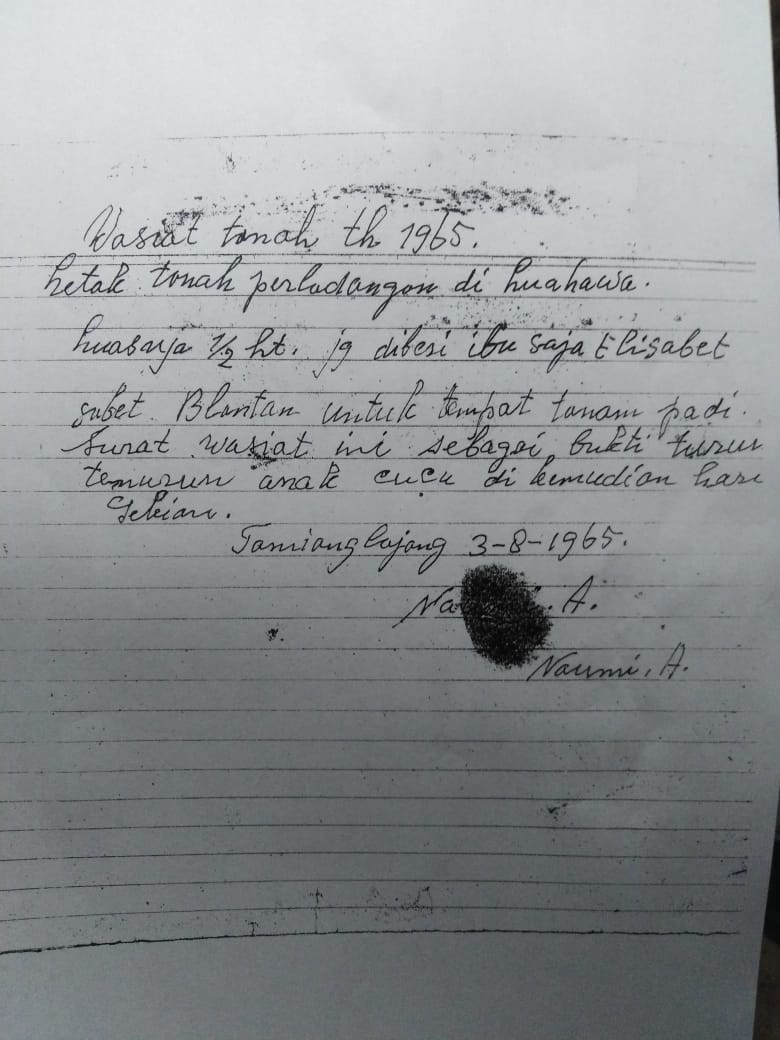 Wasiat tanah th 1965.
Letak tanah perladangan di Luahawa.
Luasnja 1/2 ht. jg diberi ibu saja Elisabet
sabet Blantan untuk tempat tanam padi.
Surat wasiat ini sebagai bukti turun
temurun anak cucu di kemudian hari
Sekian.
Tamianglajang 3-8-1965.
A.
Naumi. A.